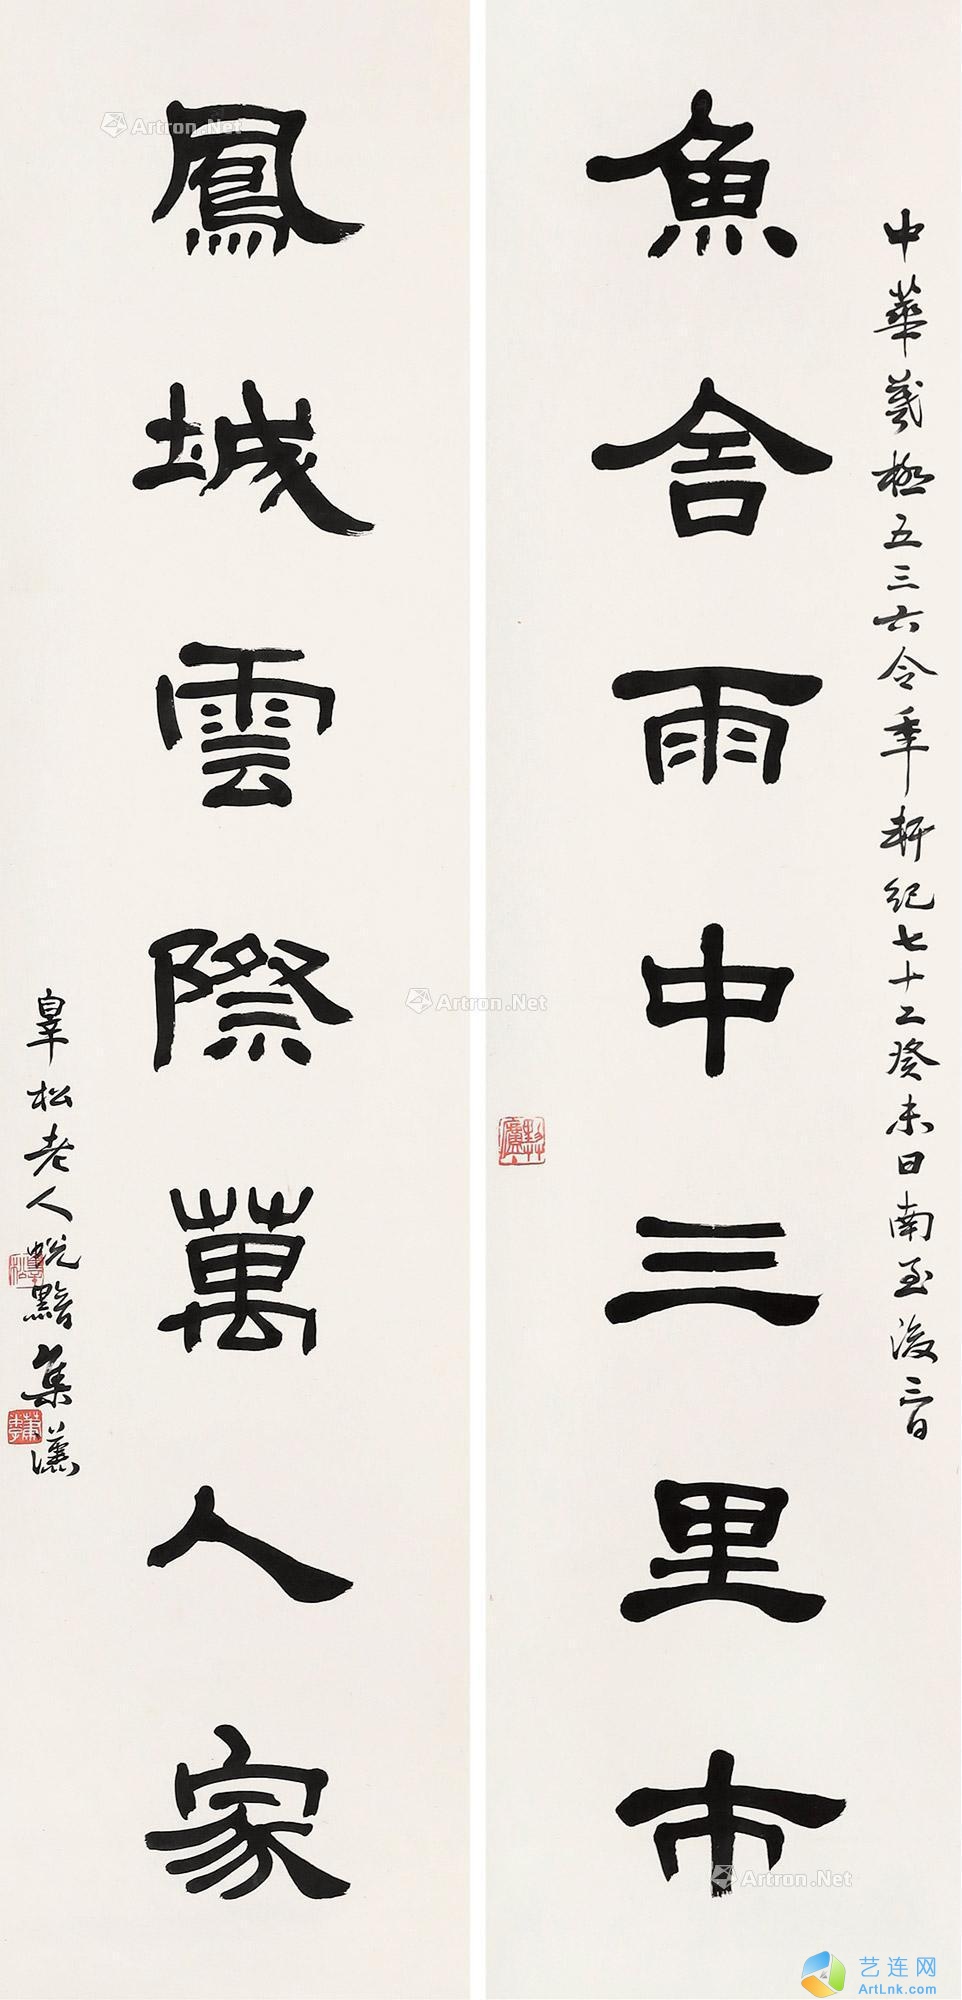 中華羲極五三六令年軒紀七十二癸未日南至後三日
魚舍雨中三里市
鳳城雲際萬人家
皋松老人蜕黯集漢
Artron.Net
Artron.Net
Artron.Net
艺连网
ArtLnk.com